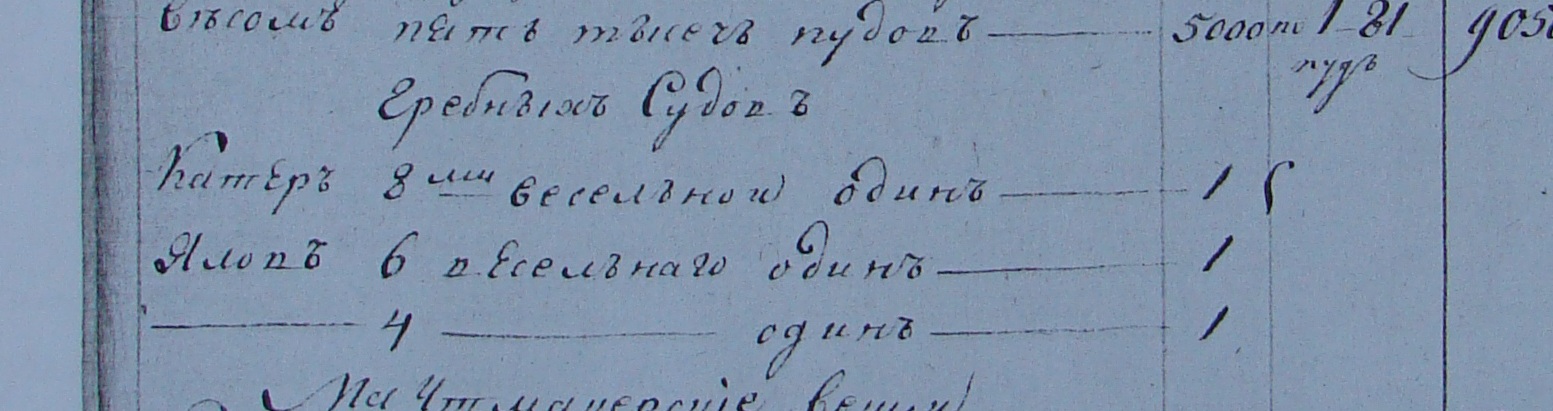 вѣсомъ пять тысечъ пудовъ — 5000 по 1-81 905
пудъ
Гребныхъ Судовъ
Катеръ 8ми весельной одинъ — 1
Яловъ 6 весельнаго одинъ — 1
— 4 — одинъ — 1
На вещи